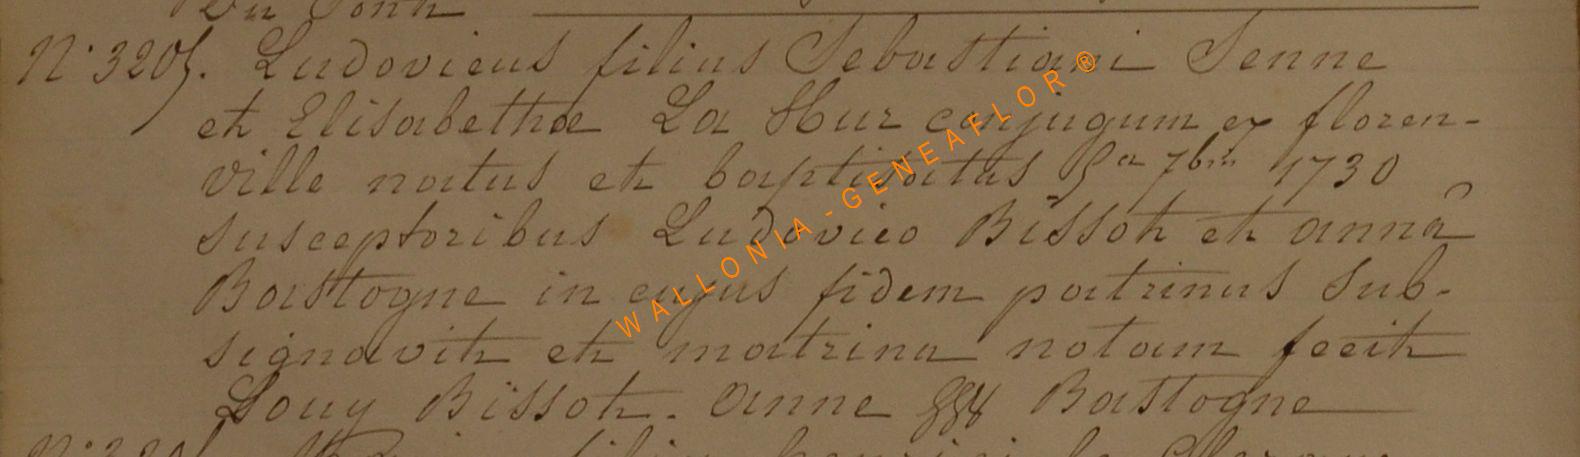 du Pont
N° 3205. Ludovicus filius Sebastiani Senne
et Elisabethæ La Hur conjugum ex floren-
ville natus et baptisatus 5a 7bris 1730
susceptoribus Ludovico Bissot et annâ
Bastogne in cujus fidem patrinus sub-
signavit et matrina notam fecit
Louy Bissot. Anne Bastogne
WALLONIA-GENEAFLOR®